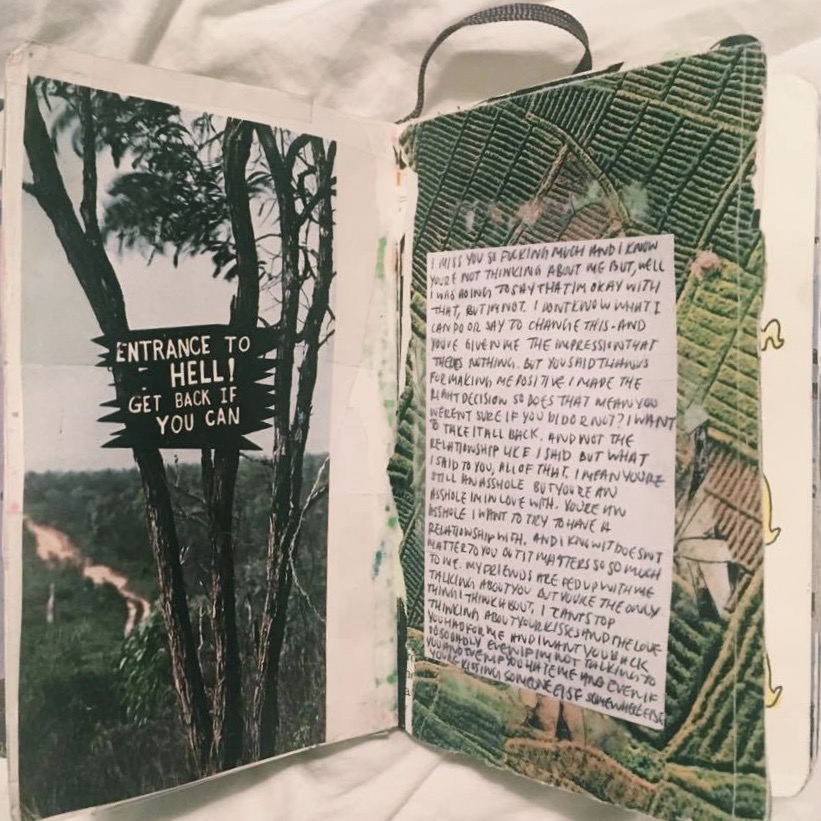 ENTRANCE TO
HELL!
GET BACK IF
YOU CAN
I MISS YOU SO FUCKING MUCH AND I KNOW
YOU'RE NOT THINKING ABOUT ME BUT, WELL
I WAS GOING TO SAY THAT IM OKAY WITH
THAT, BUT IM NOT. I DONT KNOW WHAT I
CAN DO OR SAY TO CHANGE THIS - AND
YOUVE GIVEN ME THE IMPRESSION THAT
THERES NOTHING. BUT YOU SAID THANKS
FOR MAKING ME POSITIVE I MADE THE
RIGHT DECISION SO DOES THAT MEAN YOU
WERENT SURE IF YOU DID OR NOT? I WANT
TO TAKE IT ALL BACK. AND NOT THE
RELATIONSHIP LIKE I SAID BUT WHAT
I SAID TO YOU, ALL OF THAT. I MEAN YOU'RE
STILL AN ASSHOLE BUT YOU'RE AN
ASSHOLE IM IN LOVE WITH. YOU'RE AN
ASSHOLE I WANT TO TRY TO HAVE A
RELATIONSHIP WITH. AND I KNOW IT DOESNT
MATTER TO YOU BUT IT MATTERS SO SO MUCH
TO ME. MY FRIENDS ARE FED UP WITH ME
TALKING ABOUT YOU BUT YOU'RE THE ONLY
THING I THINK ABOUT. I CANT STOP
THINKING ABOUT YOUR KISSES AND THE LOVE
YOU HAD FOR ME AND I WANT YOU BACK
SO SO BADLY EVEN IF IM NOT TALKING TO
YOU AND EVEN IF YOU HATE ME AND EVEN IF
YOU'RE KISSING SOMEONE ELSE SOMEWHERE ELSE